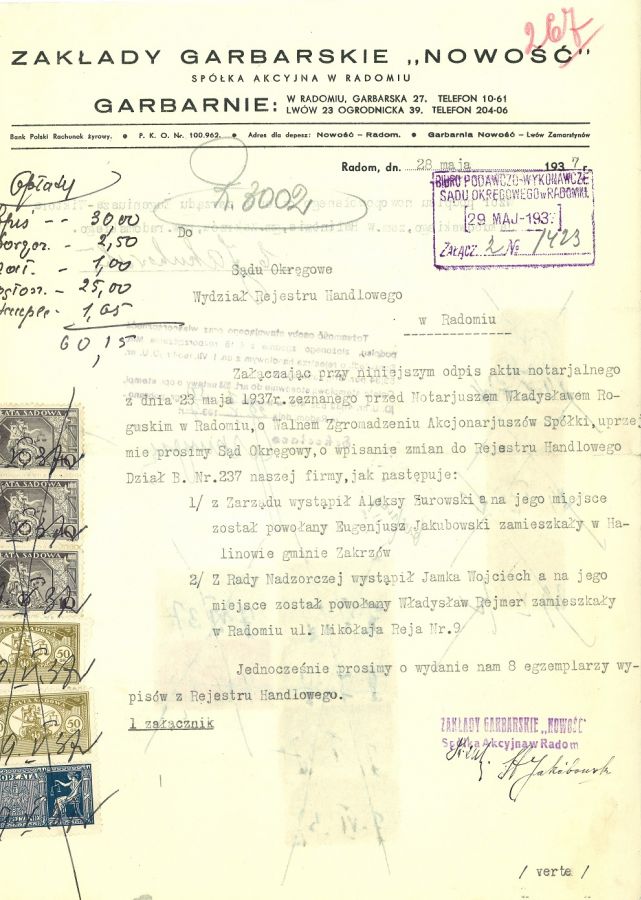 267
ZAKŁADY GARBARSKIE „NOWOŚĆ"
SPÓŁKA AKCYJNA W RADOMIU
GARBARNIE: W RADOMIU, GARBARSKA 27. TELEFON 10-61
LWÓW 23 OGRODNICKA 39. TELEFON 204-06
Bank Polski Rachunek żyrowy. • P. K. O. Nr. 100.962. • Adres dla depesz: Nowość – Radom. • Garbarnia Nowość – Lwów Zamarstynów
Radom, dn. 28 maja 1937 r.
BIURO PODAWCZO-WYKONAWCZE
SĄDU OKRĘGOWEGO w RADOMIU.
29 MAJ 1937
ZAŁĄCZ. 2 № 1423
Opłaty
30.00
2,50
1,00
25,00
1,65
60 15
3002
Do
Sądu Okręgowe
Wydział Rejestru Handlowego
w Radomiu
Załączając przy niniejszym odpis aktu notarjalnego
z dnia 23 maja 1937r.zeznanego przed Notarjuszem Władysławem Ro-
guskim w Radomiu,o Walnem Zgromadzeniu Akcjonarjuszów Spółki,uprzej
mie prosimy Sąd Okręgowy,o wpisanie zmian do Rejestru Handlowego
Dział B. Nr.237 naszej firmy,jak następuje:
1/ z Zarządu wystąpił Aleksy Żurowski a na jego miejsce
został powołany Eugenjusz Jakubowski zamieszkały w Ha-
linowie gminie Zakrzów
2/ Z Rady Nadzorczej wystąpił Jamka Wojciech a na jego
miejsce został powołany Władysław Rejmer zamieszkały
w Radomiu ul. Mikołaja Reja Nr.9
Jednocześnie prosimy o wydanie nam 8 egzemplarzy wy-
pisów z Rejestru Handlowego.
1 załącznik
ZAKŁADY GARBARSKIE „NOWOŚĆ"
Spółka Akcyjna w Radom
/ verte /